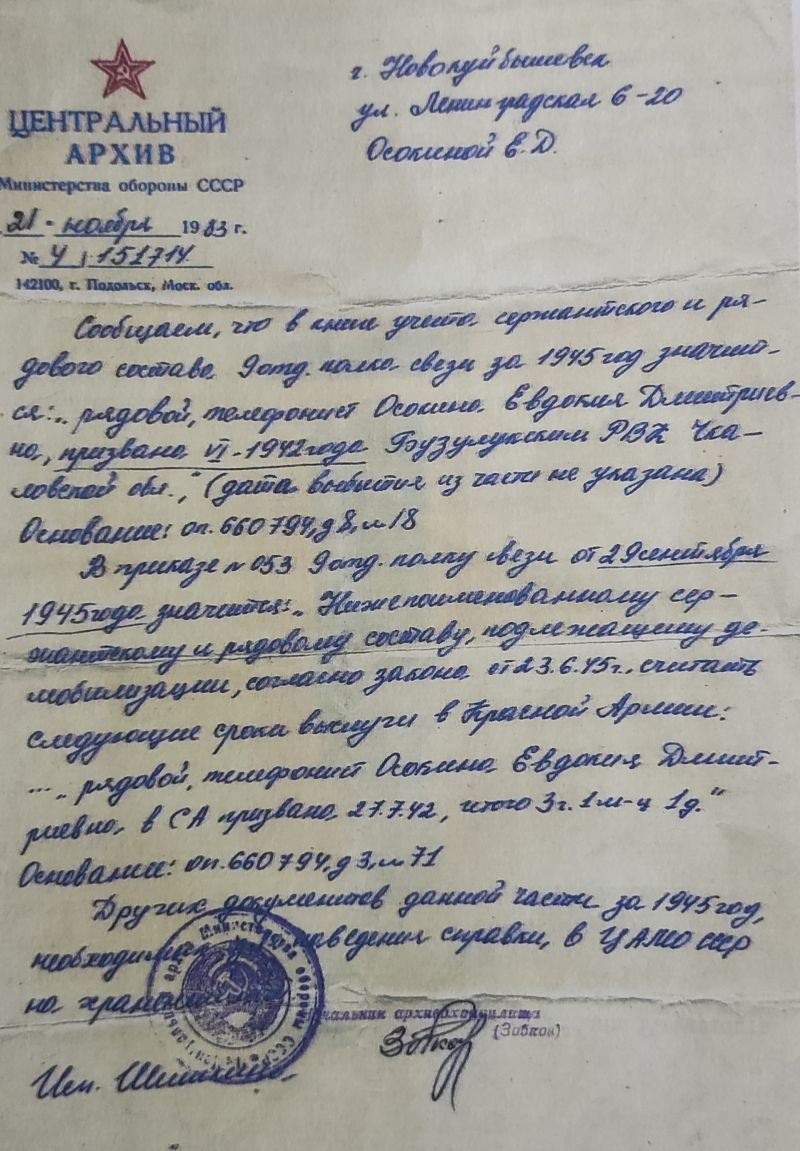 г. Новокуйбышевск
ул. Ленинградская 6-20
Осокиной Е.Д.
ЦЕНТРАЛЬНЫЙ
АРХИВ
Министерства обороны СССР
21 - ноября 1983 г.
№ 4 151714
142100, г. Подольск, Моск. обл.
Сообщаем, что в книге учета сержантского и ря-
дового состава 9 отд. полка связи за 1945 год значит-
ся: „рядовой, телефонист Осокина Евдокия Дмитриев-
на, призвана VI-1942 года Бузулукским РВК Чка-
ловской обл.,“ (дата выбытия из части не указана)
Основание: оп. 660794, д 8, л 18
В приказе № 053 9 отд. полку связи от 29 сентября
1945 года значится: „Нижепоименованному сер-
жантскому и рядовому составу, подлежащему де-
мобилизации, согласно закона от 23.6.45г., считать
следующие сроки выслуги в Красной Армии:
... „рядовой, телефонист Осокина Евдокия Дмит-
риевна в СА призвана 27.7.42, итого 3 г. 1 м-ц 1 д.“
Основание: оп. 660794, д 3, л 71
Других документов данной части за 1945 год,
необходимых наведения справки, в ЦАМО СССР
на
Начальник архивохранилища
(Зобков)
Исп.